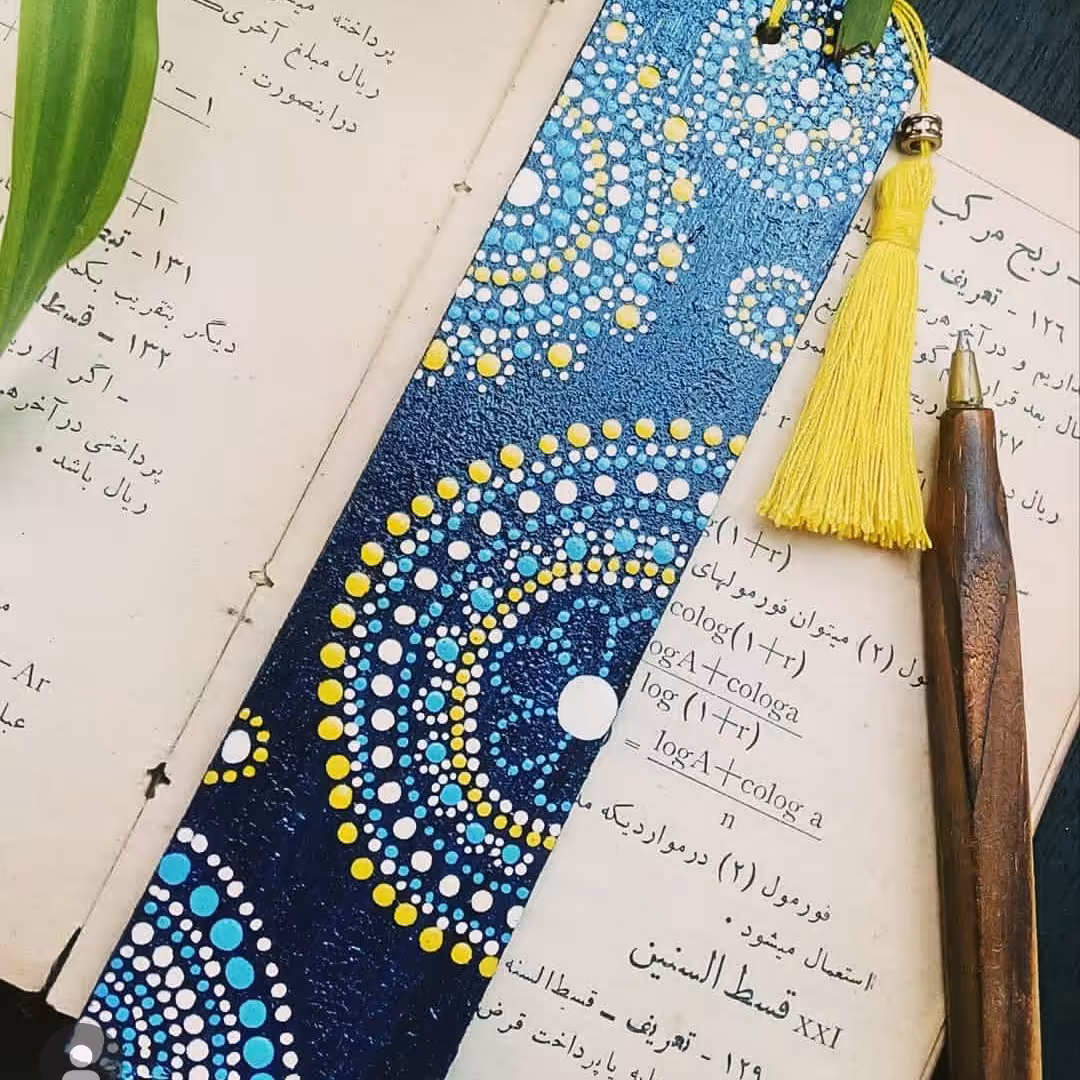 پرداخته
ریال مبلغ آخری
دراینصورت :
n
— ۱
+۱
۱۳۱ -
دیگر بتقریب
۱۳۲ - قسط
- اگر A
پرداختی در آخر
ریال باشد .
- Ar
- ربح مرکب
۱۲۶ - تعریف -
داریم و در آخر هر
بعد قرار
۲۷
r
ریال
r(۱+r)
(۲) میتوان فورمولهای
colog(۱+r)
ogA+cologa
log (۱+r)
= logA+colog a
n
فورمول (۲) درمواردیکه
استعمال میشود .
XXI قسط السنین
۱۲۹ - تعریف - قسط السنه
یا پرداخت قرض